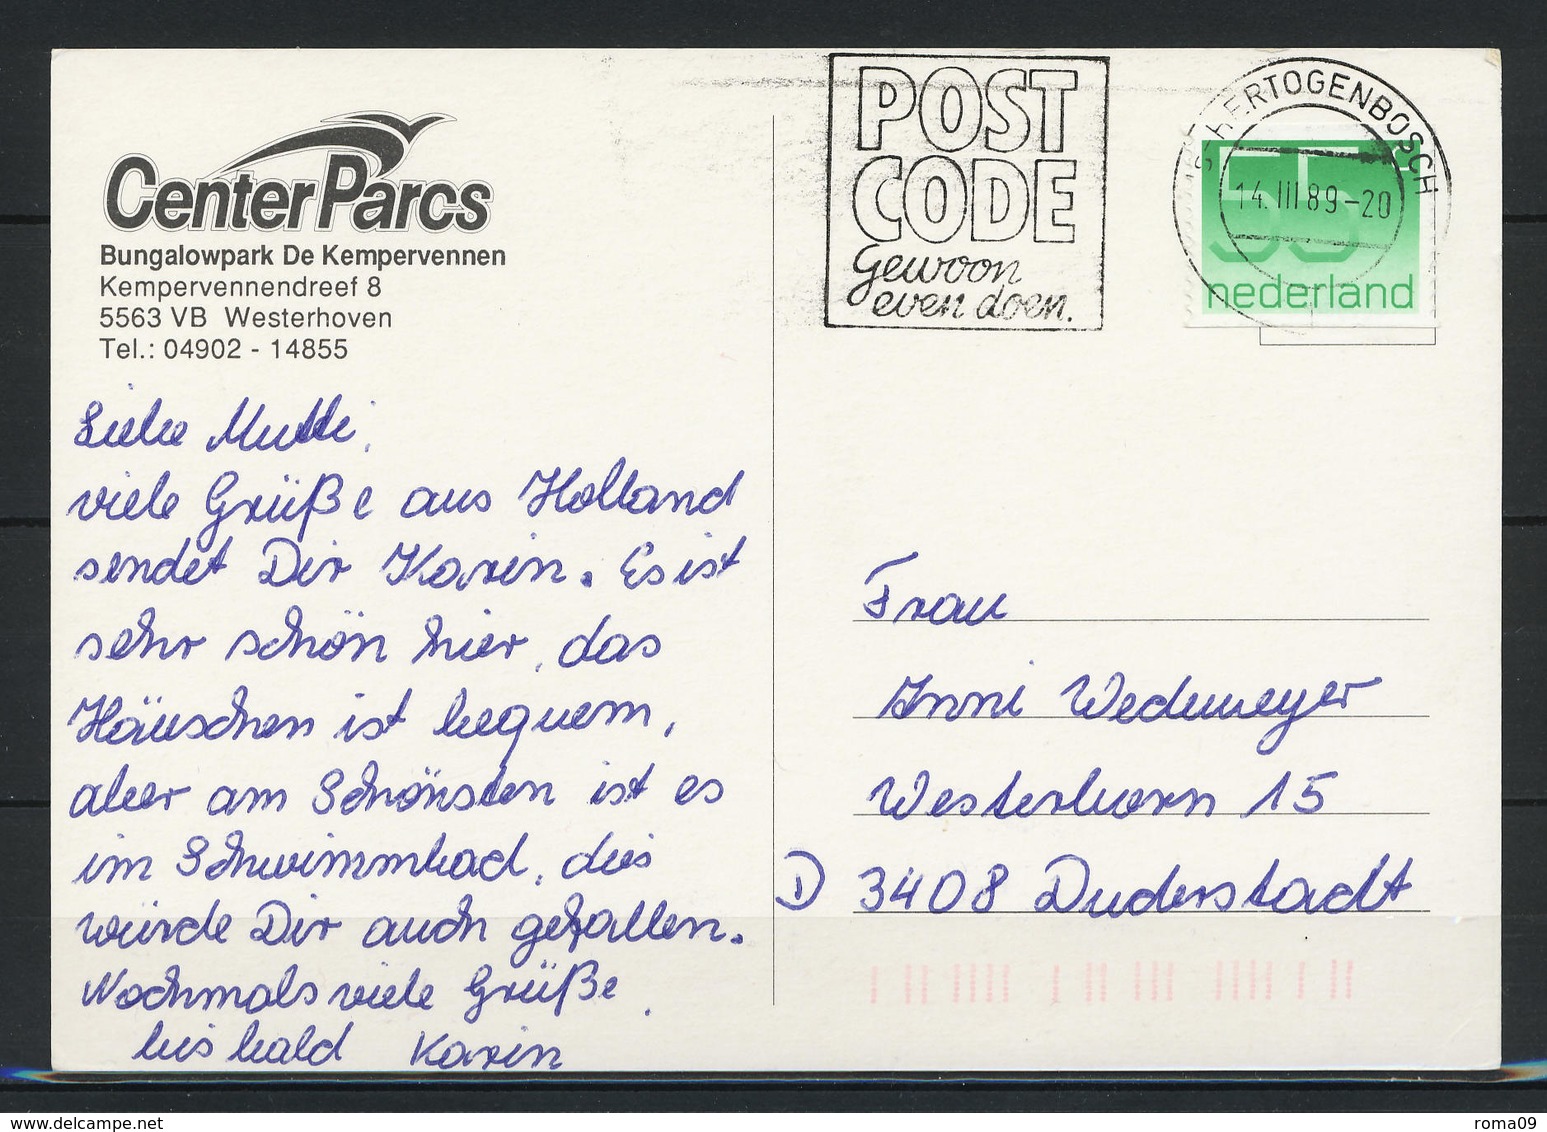 CenterParcs
Bungalowpark De Kempervennen
Kempervennendreef 8
5563 VB Westerhoven
Tel.: 04902 - 14855
Liebe Mutti,
viele Grüße aus Holland
sendet Dir Karin. Es ist
sehr schön hier, das
Häuschen ist bequem,
aber am Schönsten ist es
im Schwimmbad, dies
würde Dir auch gefallen.
Nochmals viele Grüße.
bis bald Karin
POST
CODE
Gewoon
even doen.
'S-HERTOGENBOSCH
14.III 89-20
55
nederland
Frau
Anni Wedemeyer
Westerborn 15
D 3408 Duderstadt
delcampe.net
roma09